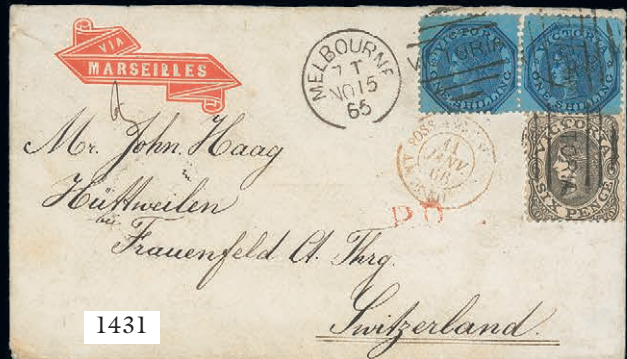 VIA
MARSEILLES
MELBOURNE
7 T
NO 15
65
VICTORIA
VICTORIA
ONE SHILLING
VICTORIA
ONE SHILLING
VICTORIA
SIX PENCE
11
JANV
66
P.D.
Mr. John Haag
Hüttweilen
bei
Frauenfeld Ct. Thrg.
Switzerland.
1431